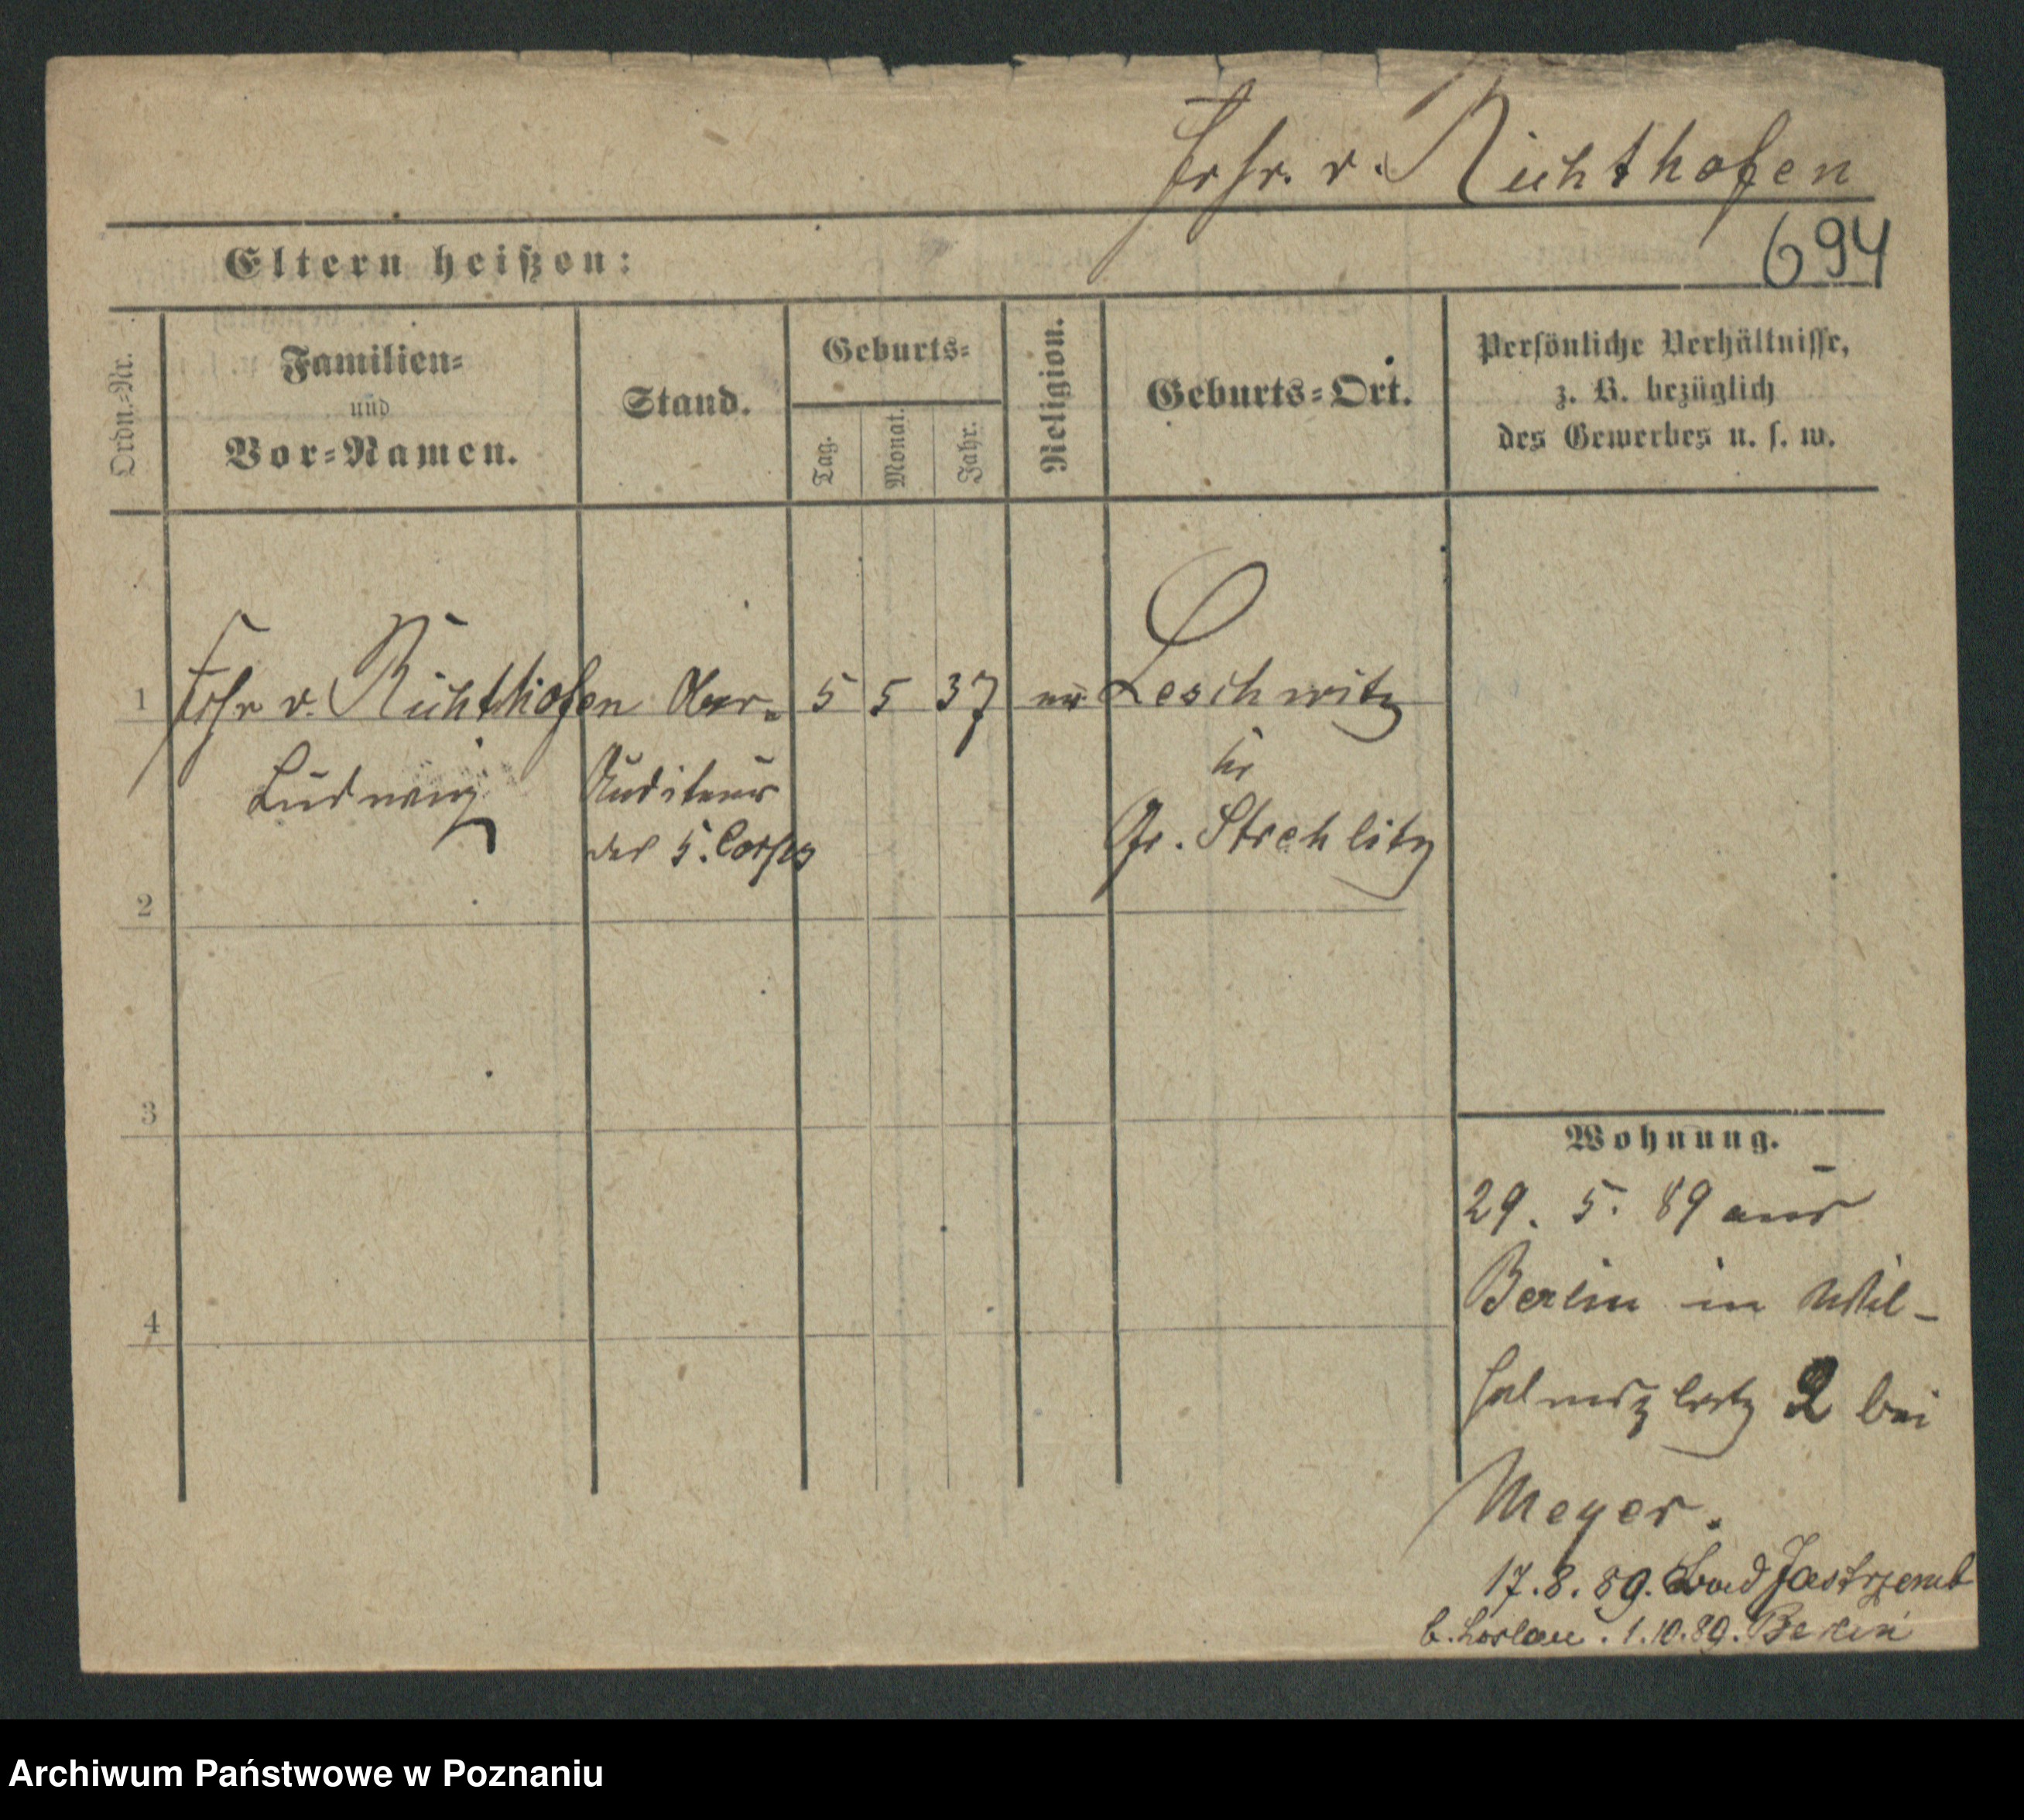 Frhr. v. Richthofen
694
Eltern heißen:
Ordn.-Nr.
Familien-
und
Vor-Namen.
Stand.
Geburts-
Tag.
Monat.
Jahr.
Religion.
Geburts-Ort.
Persönliche Verhältnisse,
z. B. bezüglich
des Gewerbes u. s. w.
1 Frhr v. Richthofen Ober- 5 5 37 Leschwitz
Ludwig Auditeur
des 5. Corps Gr. Strehlitz
2
3
4
Wohnung.
29. 5. 89 aus
Berlin in Wil-
helmsplatz 2 bei
Meyer.
17.8.89. Bad Jastrzemb
b. Loslau. 1.10.89. Berlin
Archiwum Państwowe w Poznaniu